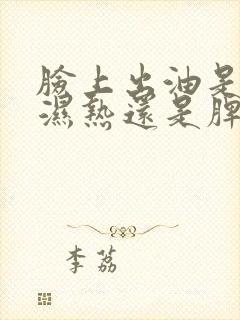 臉上出油是
濕熱還是脾
李荔